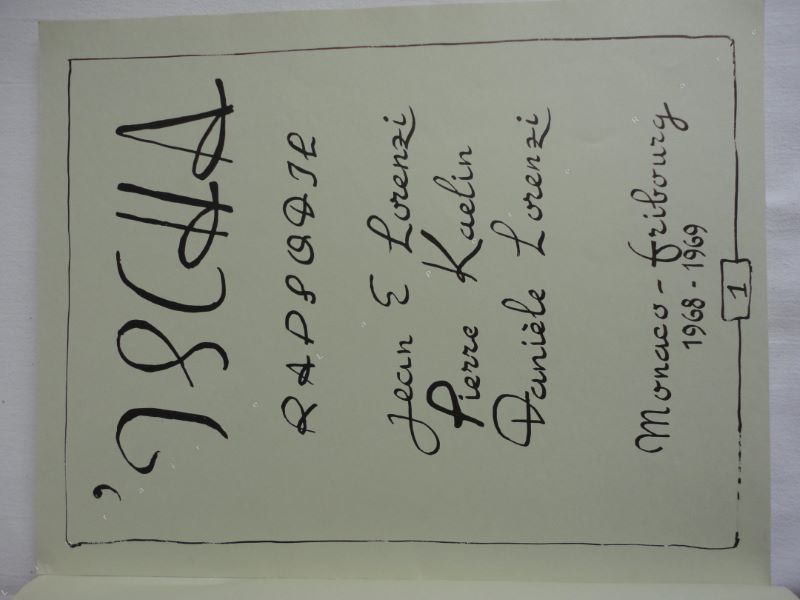 'ISCHA
RAPSODIE
Jean E Lorenzi
Pierre Kaelin
Danièle Lorenzi
Monaco - Fribourg
1968 - 1969
1